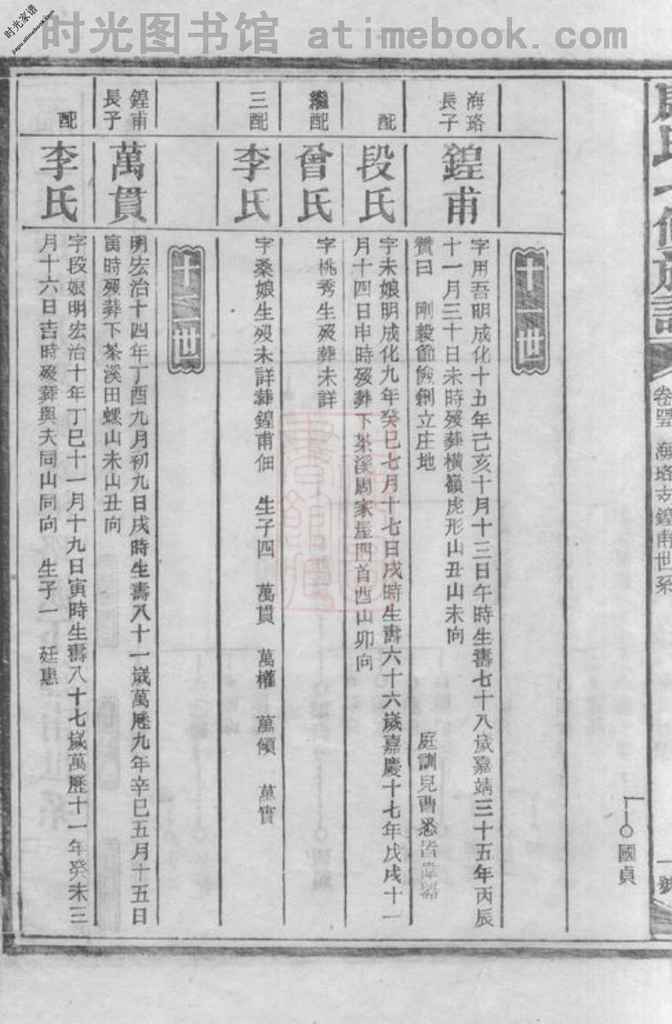 时光图书馆 atimebook.com
时光家谱
卷
海珞支鍠甫世系
一號
國貞
十二世
海珞長子
鍠甫
字用吾明成化十五年己亥十月十三日午時生壽七十八歲嘉靖三十五年丙辰
十一月三十日未時殁葬橫嶺虎形山丑山未向
贊曰 剛毅節儉創立庄地 庭訓兒曹悉皆
配
段氏
字未娘明成化九年癸巳七月十七日戌時生壽六十六歲嘉慶十七年戊戌十一
月十四日申時殁葬下茶溪周家屋西首酉山卯向
繼配
曾氏
字桃秀生殁葬未詳
三配
李氏
字桑娘生殁未詳葬鍠甫佃 生子四 萬貫 萬權 萬傾 萬實
十三世
鍠甫長子
萬貫
明宏治十四年丁酉九月初九日戌時生壽八十一歲萬歷九年辛巳五月十五日
寅時殁葬下茶溪田螺山未山丑向
配
李氏
字段娘明宏治十年丁巳十一月十九日寅時生壽八十七歲萬歷十一年癸未三
月十六日吉時殁葬與夫同山同向 生子一 廷惠